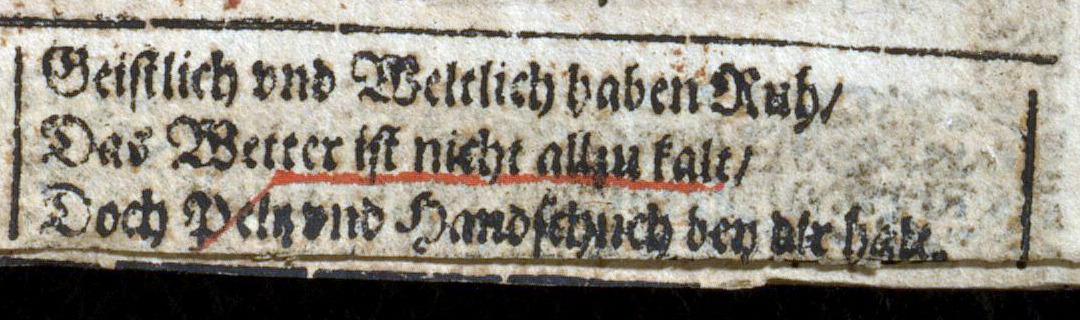 Geistlich vnd Weltlich haben Ruh/
Das Wetter ist nicht allzu kalt/
Doch Peltz vnd Handschuch bey dir halt.